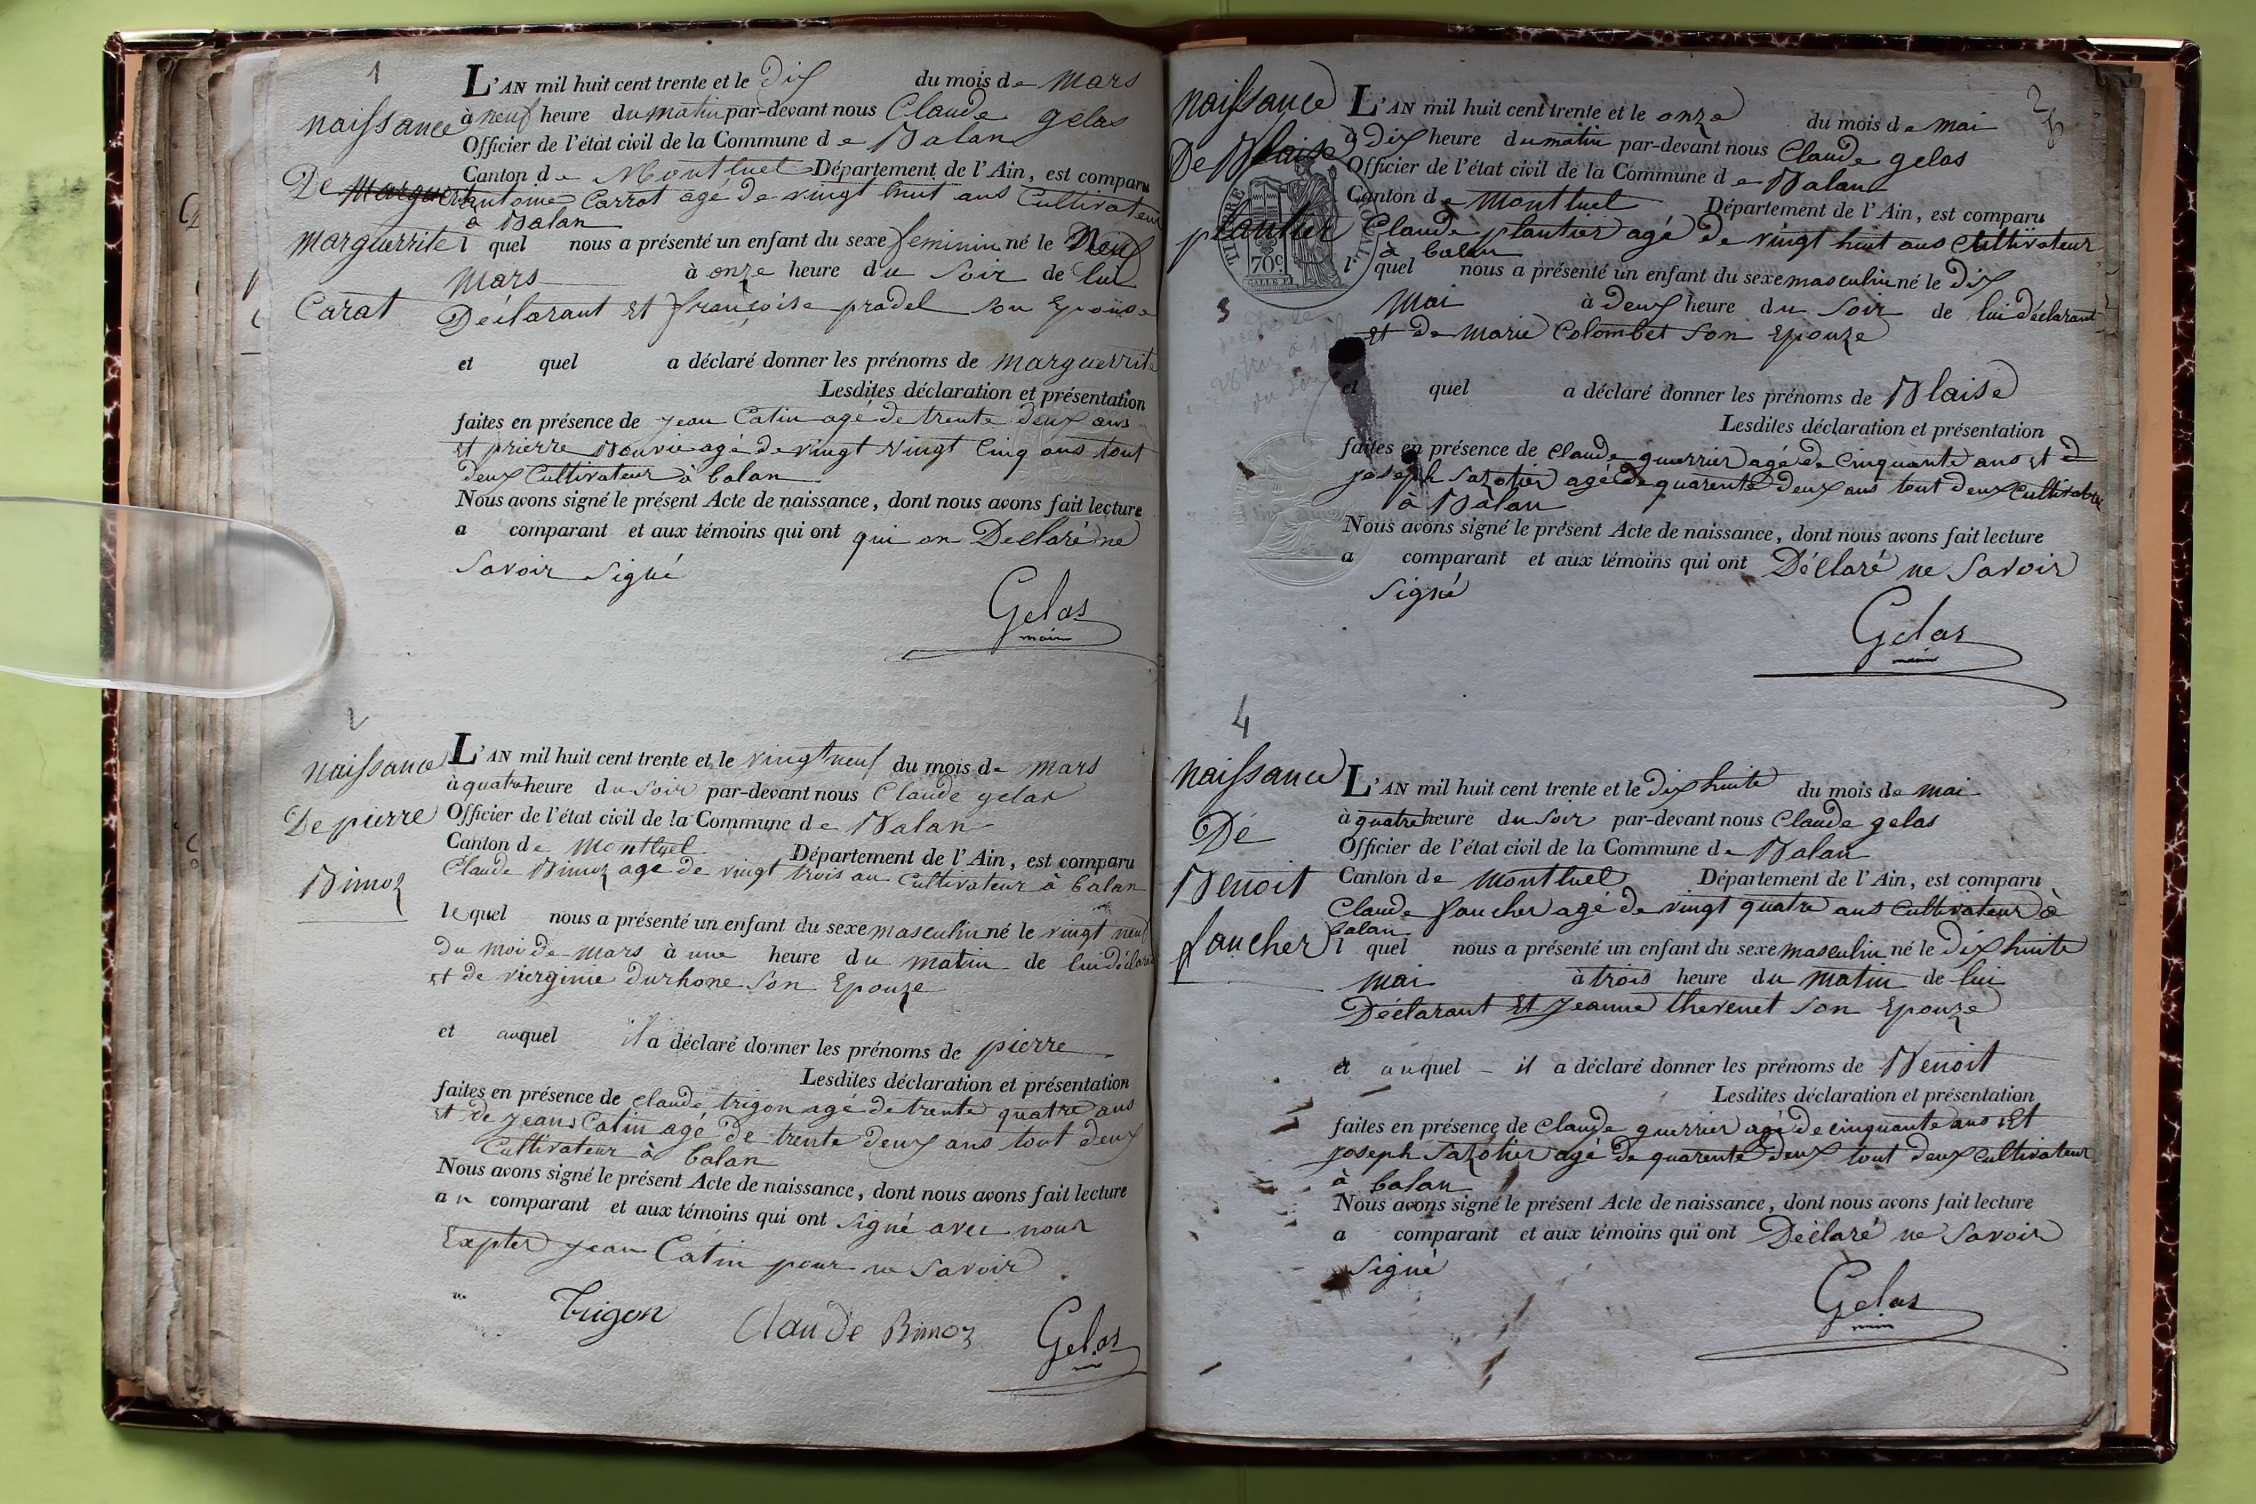 1
naissance
De Marguerite
Marguerrite
Carat
L'AN mil huit cent trente et le Dix du mois de Mars
à neuf heure du matin par-devant nous Claude gelas
Officier de l'état civil de la Commune de Balan
Canton de Montluel Département de l'Ain, est comparu
antoine Carrat agé de vingt huit ans Cultivateur
à Balan
l quel nous a présenté un enfant du sexe feminin né le Neuf
Mars à onze heure du Soir de lui
Déclarant et françoise pradel son Epouse
et quel a déclaré donner les prénoms de marguerrite
Lesdites déclaration et présentation
faites en présence de jean Catin agé de trente deux ans
et prierre agé de vingt vingt Cinq ans tout
deux Cultivateur à balan
Nous avons signé le présent Acte de naissance, dont nous avons fait lecture
a comparant et aux témoins qui ont qui on Déclaré ne
Savoir Signé
Gelas
maire
2
naissance
De pierre
Bimoz
L'AN mil huit cent trente et le vingt neuf du mois de mars
à quatre heure du Soir par-devant nous Claude gelas
Officier de l'état civil de la Commune de Balan
Canton de Montluel Département de l'Ain, est comparu
Claude Bimoz agé de vingt trois an Cultivateur à balan
lequel nous a présenté un enfant du sexe masculin né le vingt neuf
du moi de mars à une heure du matin de lui déclarant
et de viergine durhone Son Epouze
et auquel il a déclaré donner les prénoms de pierre
Lesdites déclaration et présentation
faites en présence de claude trigon agé de trente quatre ans
et de jean Catin agé de trente deux ans tout deux
Cultivateur à balan
Nous avons signé le présent Acte de naissance, dont nous avons fait lecture
au comparant et aux témoins qui ont signé avec nous
Expter jean Catin pour ne Savoir
Trigon Claude Bimoz Gelas
naissance
De Blaise
plantier
3
TIMBRE ROYAL
70c
L'AN mil huit cent trente et le onze du mois de mai
à Dix heure du matin par-devant nous Claude gelas
Officier de l'état civil de la Commune de Balan
Canton de Montluel Département de l'Ain, est comparu
Claude plantier agé de vingt huit ans Cultivateur
à balan
l quel nous a présenté un enfant du sexe masculin né le dix
Mai à deux heure du Soir de lui déclarant
et de marie Colombet Son Epouze
et quel a déclaré donner les prénoms de Blaise
Lesdites déclaration et présentation
faites en présence de Claude guerrier agé de Cinquante ans et d
joseph Sazotier agé de quarente deux ans tout deux Cultivateur
à Balan
Nous avons signé le présent Acte de naissance, dont nous avons fait lecture
a comparant et aux témoins qui ont Déclaré ne Savoir
Signé
Gelas
maire
4
naissance
De
Benoit
faucher
L'AN mil huit cent trente et le Dix huite du mois de mai
à quatre heure du Soir par-devant nous Claude gelas
Officier de l'état civil de la Commune de Balan
Canton de Montluel Département de l'Ain, est comparu
Claude faucher agé de vingt quatre ans Cultivateur à
balan
l quel nous a présenté un enfant du sexe masculin né le Dix huite
mai à trois heure du matin de lui
Déclarant et jeanne thevenet Son Epouze
et auquel il a déclaré donner les prénoms de Benoit
Lesdites déclaration et présentation
faites en présence de Claude guerrier agé de cinquante ans Et
joseph Sazotier agé de quarente deux tout deux Cultivateur
à balan
Nous avons signé le présent Acte de naissance, dont nous avons fait lecture
a comparant et aux témoins qui ont Déclaré ne Savoir
Signé
Gelas